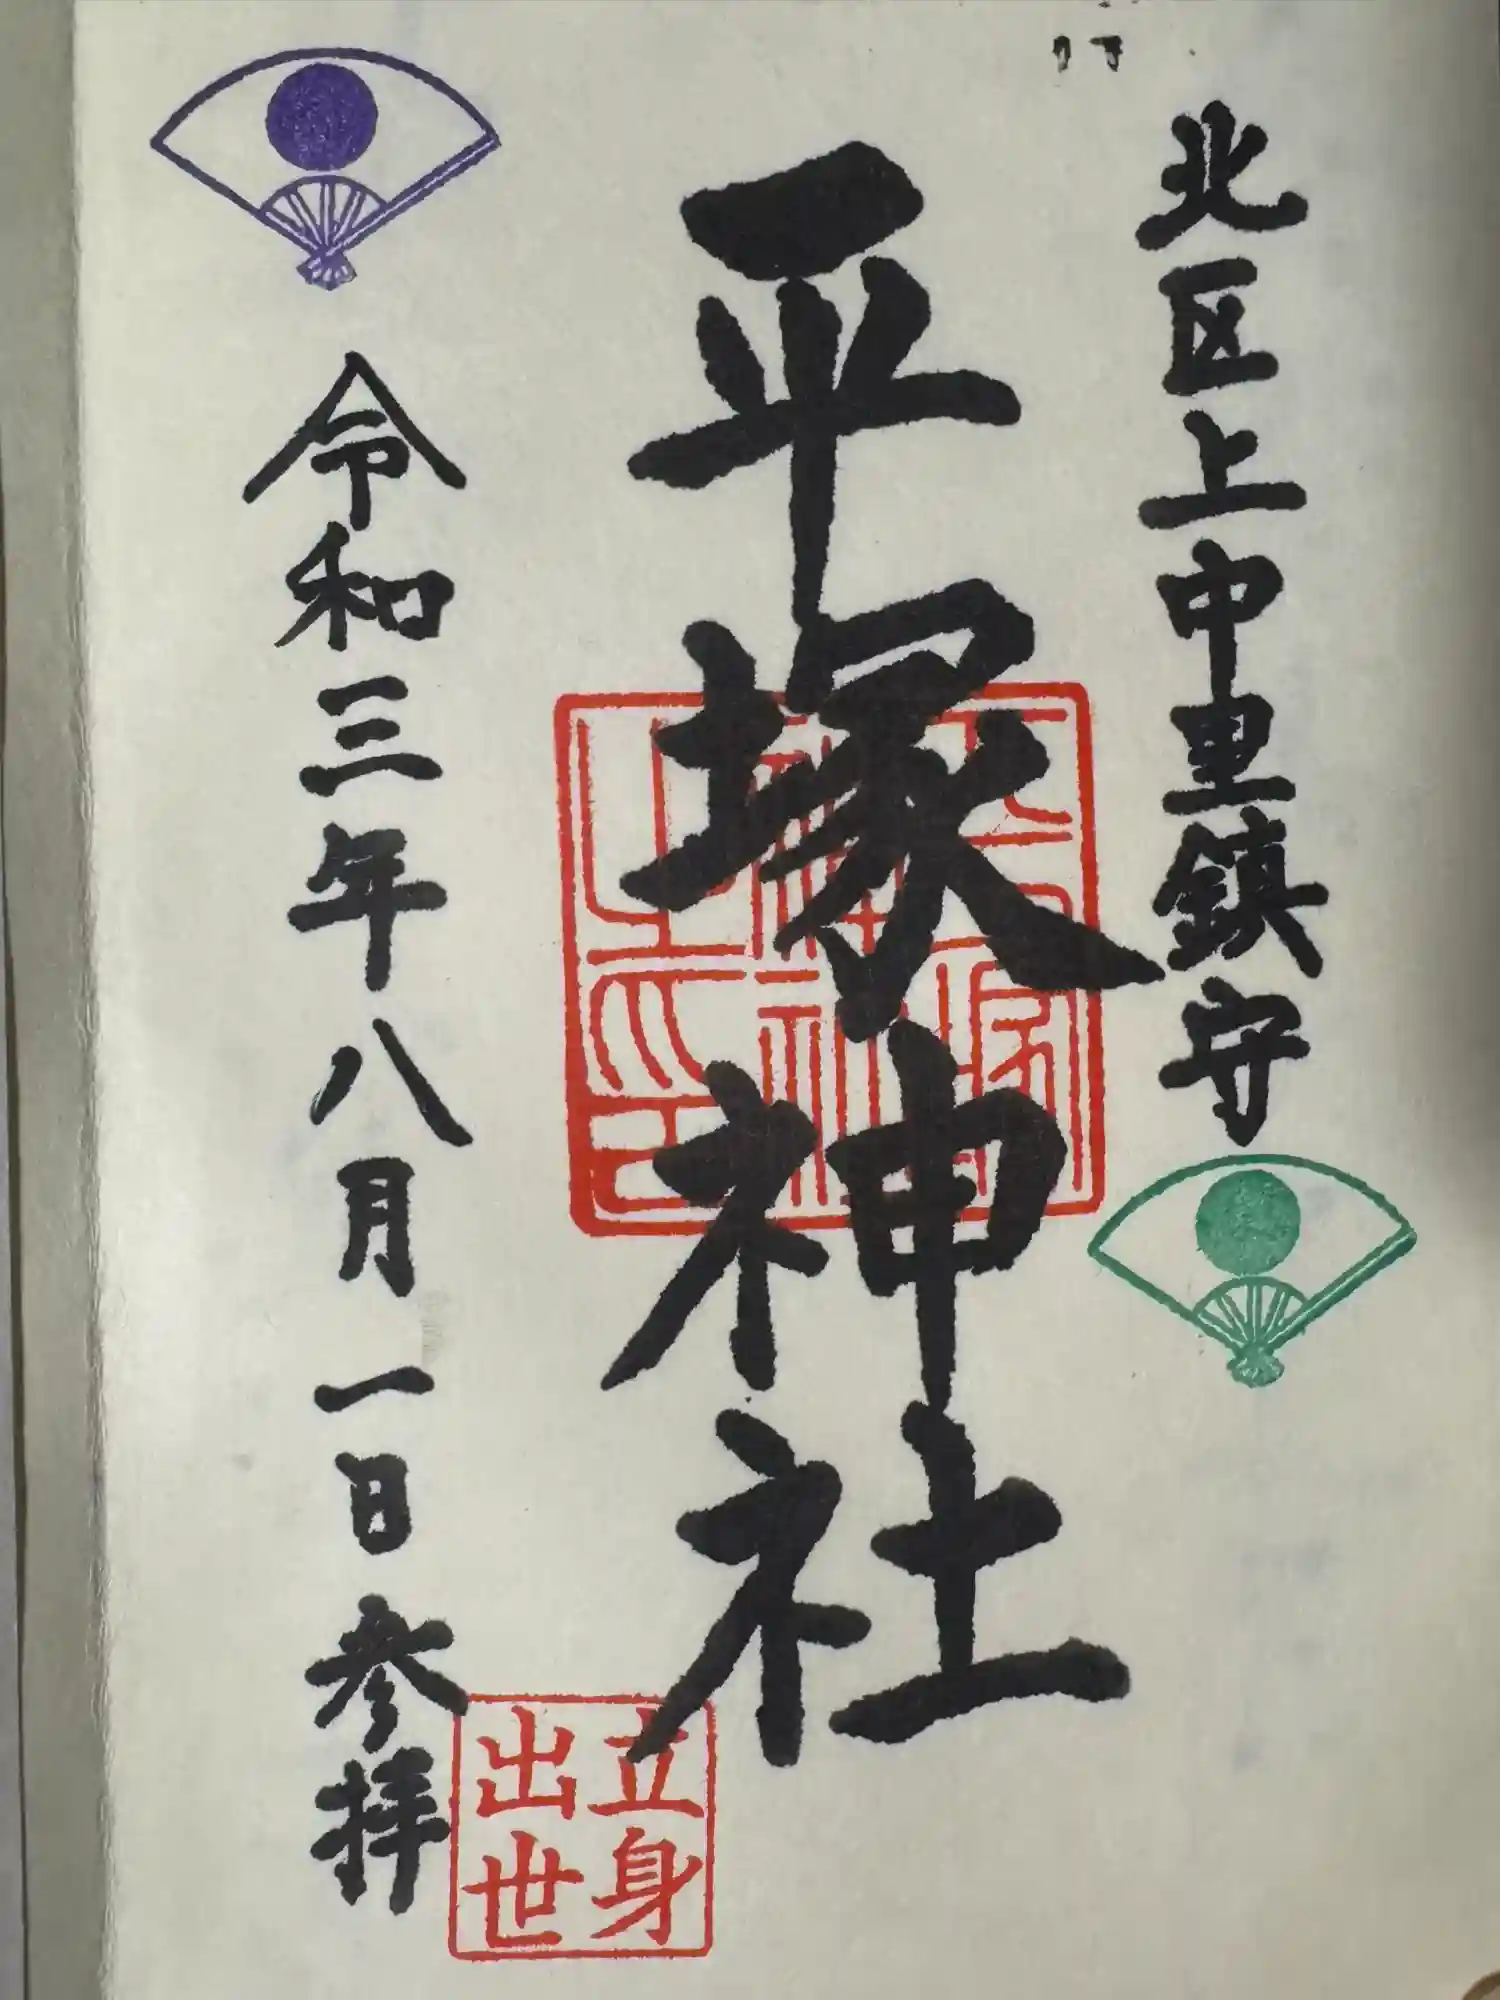 北区上中里鎮守
平塚神社
平塚神社之印
立身出世
令和三年八月一日参拝